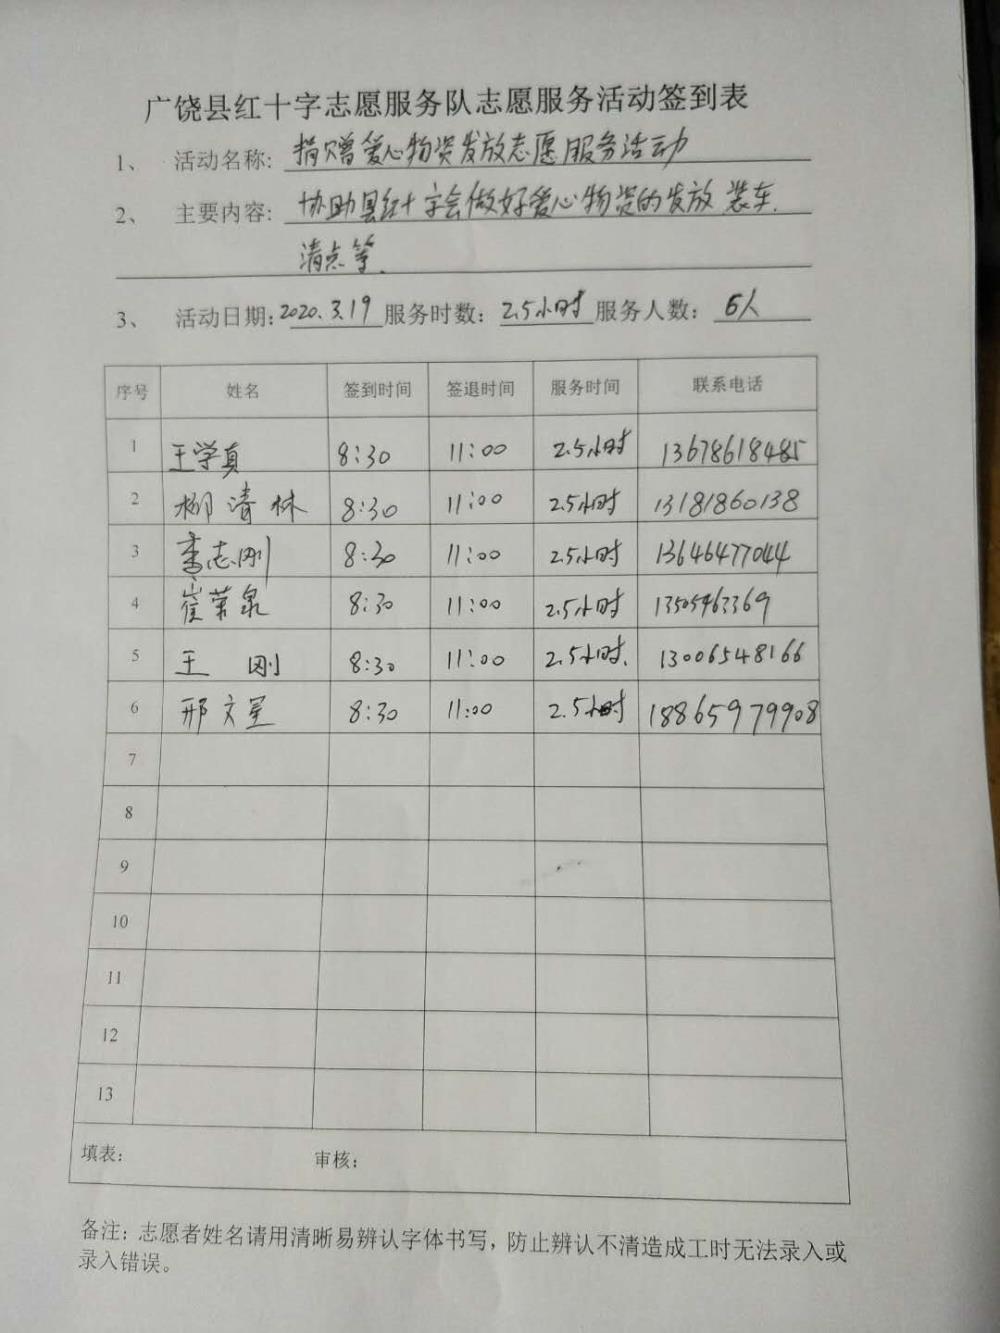 广饶县红十字志愿服务队志愿服务活动签到表
1、 活动名称: 捐赠爱心物资发放志愿服务活动
2、 主要内容: 协助县红十字会做好爱心物资的发放 装车.
清点等.
3、 活动日期: 2020.3.19 服务时数: 2.5小时 服务人数: 6人
序号 姓名 签到时间 签退时间 服务时间 联系电话
1 王学真 8:30 11:00 2.5小时 13678618485
2 柳清林 8:30 11:00 2.5小时 13181860138
3 李志刚 8:30 11:00 2.5小时 13646477044
4 崔荣泉 8:30 11:00 2.5小时 13505463369
5 王 刚 8:30 11:00 2.5小时. 13006548166
6 邢文 8:30 11:00 2.5小时 18865979908
7
8
9
10
11
12
13
填表: 审核:
备注: 志愿者姓名请用清晰易辨认字体书写, 防止辨认不清造成工时无法录入或
录入错误。